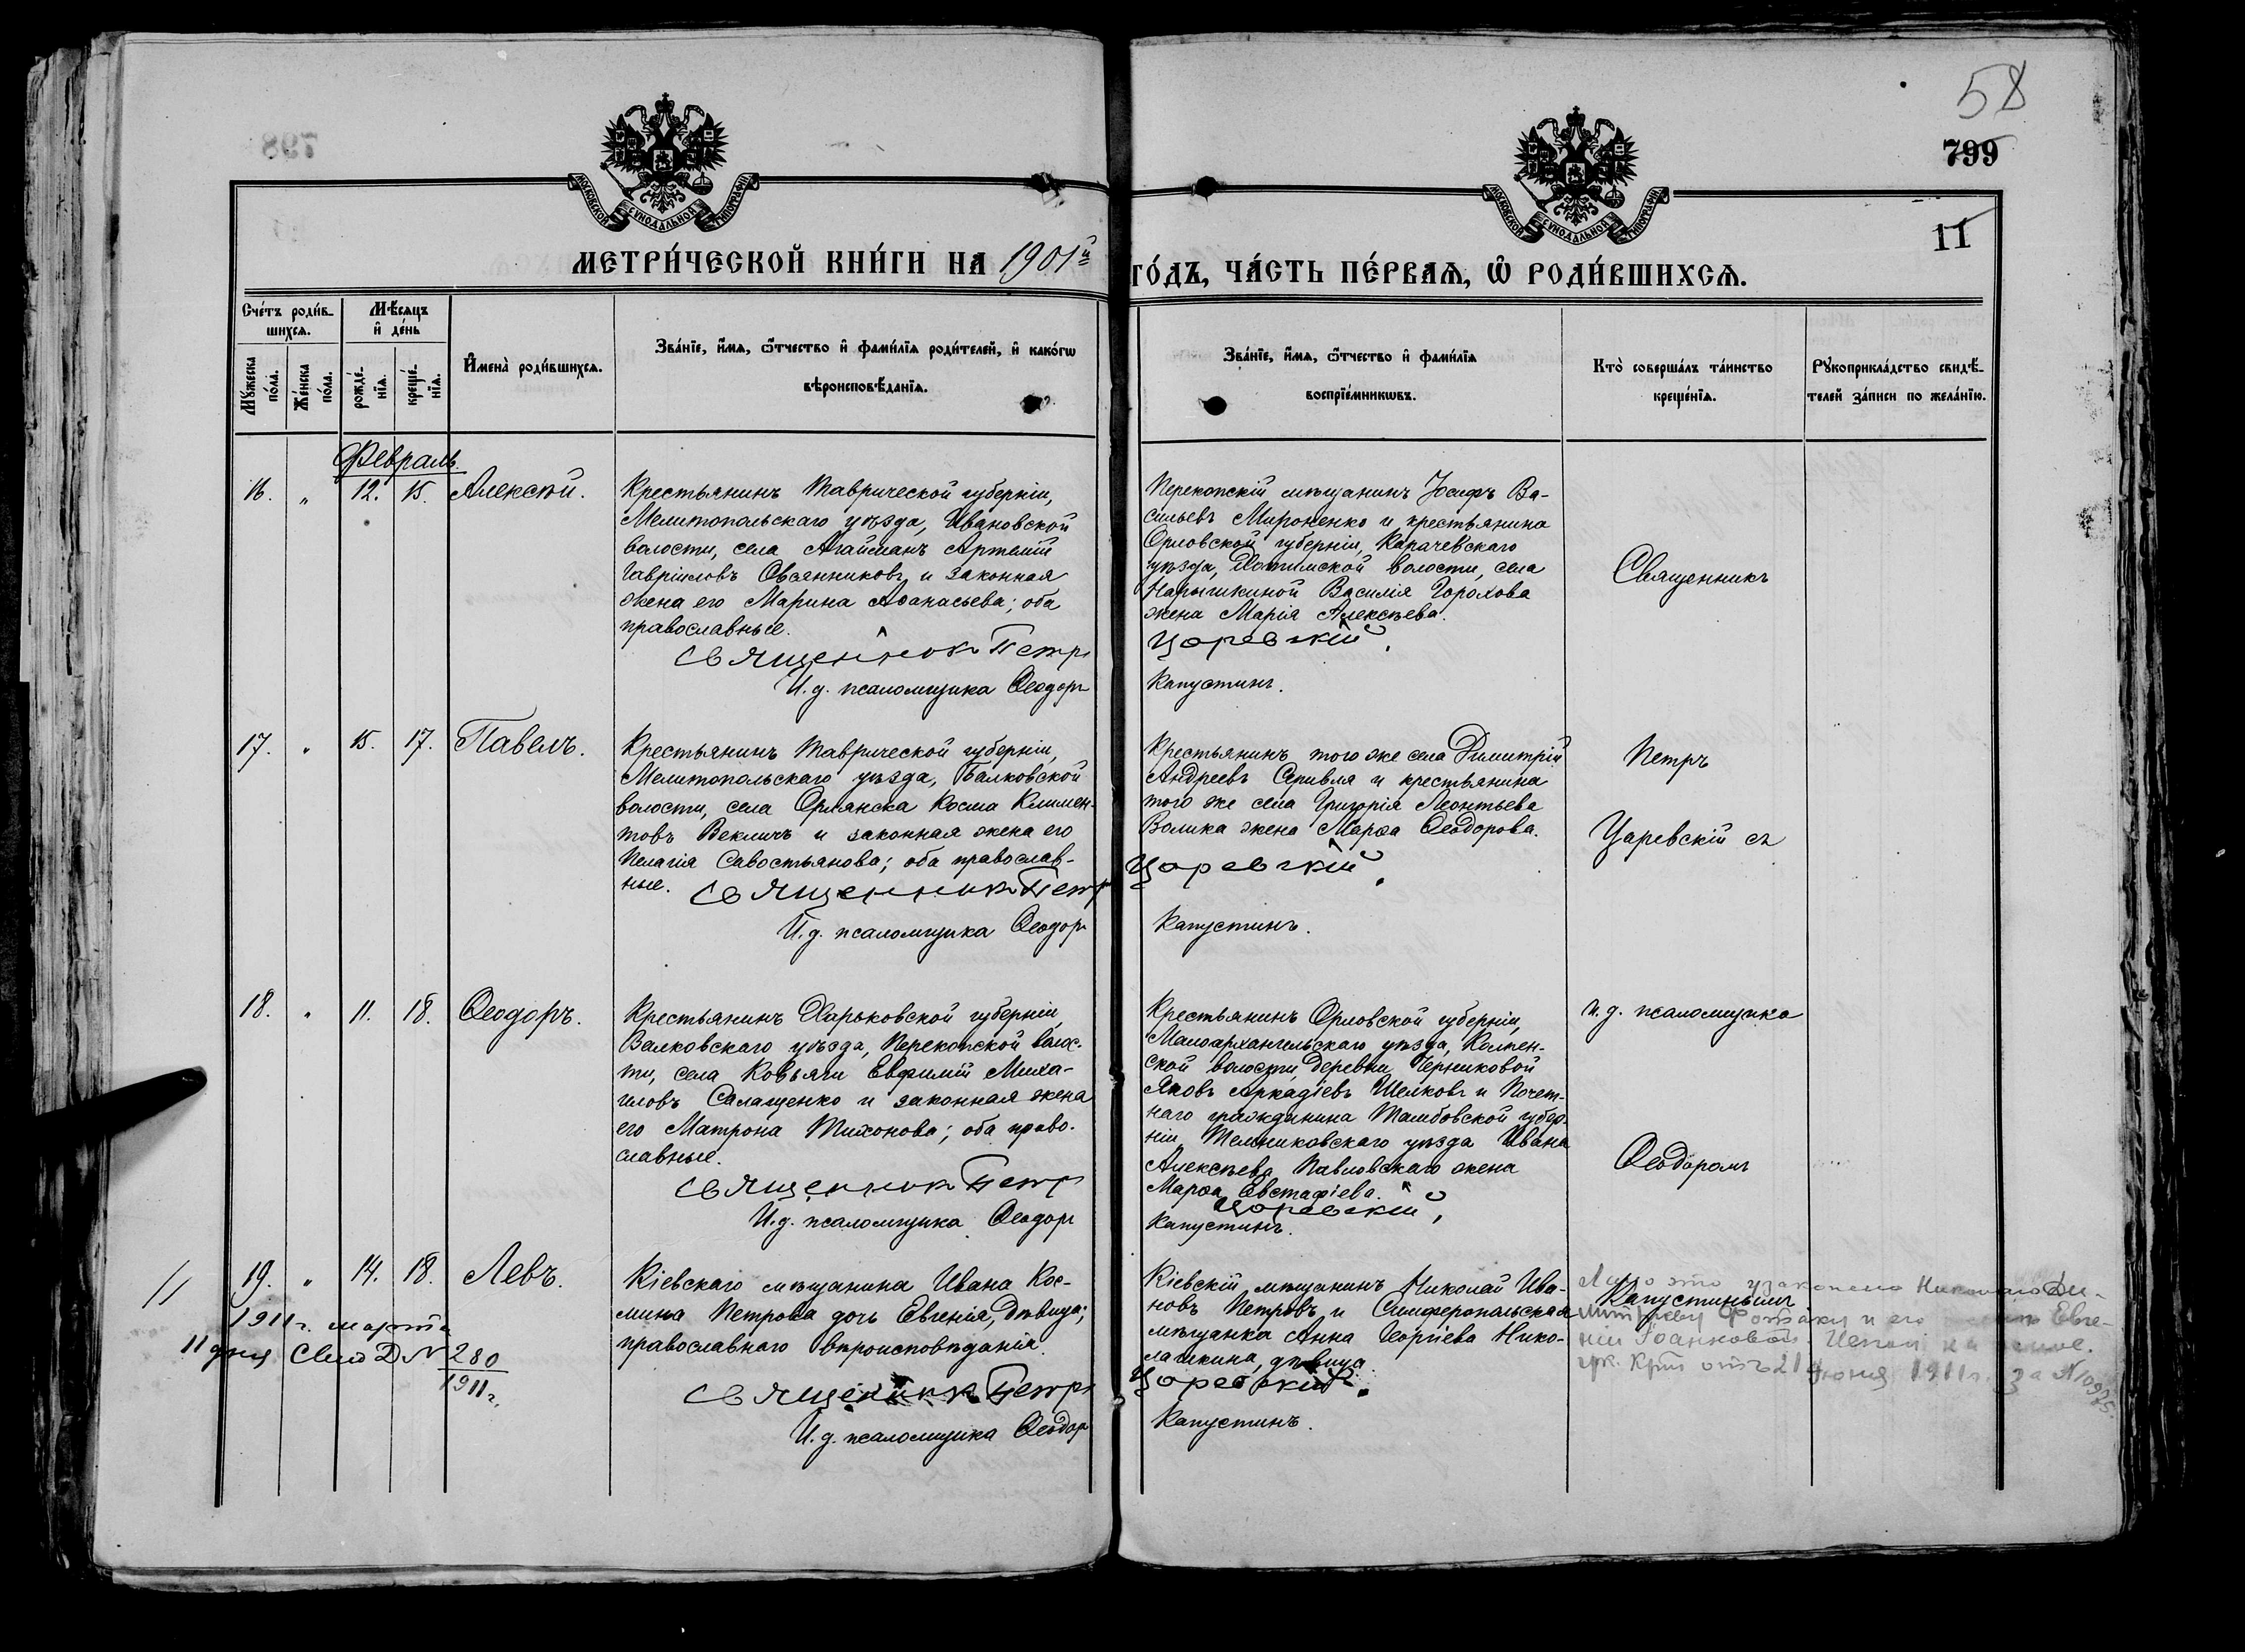 58
799
11
798
МОСКОВСКОЙ СѴНОДАЛЬНОЙ ТИПОГРАФІИ
МОСКОВСКОЙ СѴНОДАЛЬНОЙ ТИПОГРАФІИ
МЕТРИ́ЧЕСКОЙ КНИ́ГИ НА 1901й ГО́ДЪ, ЧА́СТЬ ПЕ́РВАѦ, Ѽ РОДИ́ВШИХСѦ.
Сче́тъ роди́в-
шихся.
Мѣ́сяцъ
и҆ де́нь
Мꙋ́жеска
по́ла.
Же́нска
по́ла.
рожде́-
нїя.
креще́-
нїя.
И҆мена̀ роди́вшихся.
Зва́нїе, и҆́мя, ѻ҆́тчество и҆ фами́лїя роди́телей, и҆ како́гѡ
вѣроисповѣ́данїя.
Зва́нїе, и҆́мя, ѻ҆́тчество и҆ фами́лїя
воспрїе́мникѡвъ.
Кто̀ соверша́лъ та́инство
креще́нїя.
Рꙋкоприкла́дство свидѣ́-
телей за́писи по жела́нїю.
Февраль.
16. „ 12. 15. Алексѣй.
Крестьянинъ Таврической губерніи,
Мелитопольскаго уѣзда, Ивановской
волости, села Агайманъ Артемій
Гавріиловъ Овсянниковъ и законная
жена его Марина Аѳанасьева; оба
православные.
Священникъ Петръ
И. д. псаломщика Ѳеодоръ
Перекопскій мѣщанинъ Іосифъ Ва-
сильевъ Мироненко и крестьянина
Орловской губерніи, Карачевскаго
уѣзда, Хотимской волости, села
Нарышкиной Василія Горохова
жена Марія Алексѣева.
Царевскій.
Капустинъ.
Священникъ
17. „ 15. 17. Павелъ.
Крестьянинъ Таврической губерніи,
Мелитопольскаго уѣзда, Балковской
волости, села Орлянска Косма Климен-
товъ Векличъ и законная жена его
Пелагія Савостьянова; оба православ-
ные.
Священникъ Петръ
И. д. псаломщика Ѳеодоръ
Крестьянинъ того же села Димитрій
Андреевъ Серивля и крестьянина
того же села Григорія Леонтьева
Волика жена Марѳа Ѳеодорова.
Царевскій.
Капустинъ.
Петръ
Царевскій съ
18. „ 11. 18. Ѳеодоръ.
Крестьянинъ Харьковской губерніи,
Валковскаго уѣзда, Перекопской волос-
ти, села Ковьяги Евфимій Миха-
иловъ Салащенко и законная жена
его Матрона Тихонова; оба право-
славные.
Священникъ Петръ
И. д. псаломщика Ѳеодоръ
Крестьянинъ Орловской губерніи,
Малоархангельскаго уѣзда, Колпен-
ской волости, деревни Черниковой
Яковъ Аркадіевъ Шелковъ и Почет-
наго гражданина Тамбовской губер-
ніи, Темниковскаго уѣзда Ивана
Алексѣева Павловскаго жена
Марѳа Евстафіева.
Царевскій,
Капустинъ.
и. д. псаломщика
Ѳеодоромъ
19. „ 14. 18. Левъ.
1911 г. марта
11 дня Свид № 280
1911 г.
Кіевскаго мѣщанина Ивана Кос-
мина Петрова дочь Евгенія, дѣвица;
православнаго вѣроисповѣданія.
Священникъ Петръ
И. д. псаломщика Ѳеодоръ
Кіевскій мѣщанинъ Николай Ива-
новъ Петровъ и Симферопольская
мѣщанка Анна Георгіева Нико-
лашкина, дѣвица.
Царевскій.
Капустинъ.
Капустинымъ.
это узаконено Николаю Ди-
и его Евге-
ніи Іоанновой.
отъ 21 Іюня 1911 г. за №